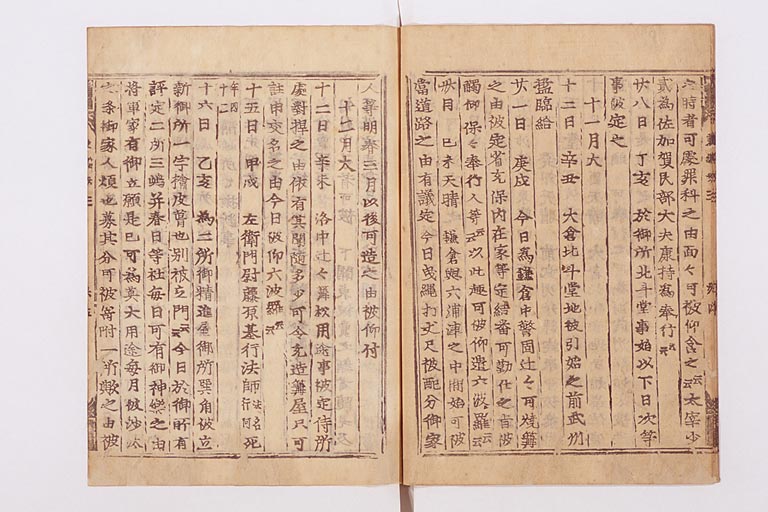 之時者可處罪科之由面々可被仰含之云云太宰少
貳為佐加賀民部大夫康持為奉行云云
廿八日 丁亥 於御所北斗堂事始以下日次等
事被定之
十一月大
十二日 辛丑 大倉北斗堂地被引始之前武州
監臨給
廿一日 庚戌 今日為鎌倉中警固辻々可燒篝
之由被定省充保内在家等定結番可勤仕之旨被
觸仰保々奉行人等云云以此趣可被仰遣六波羅云云
卅日 己未天晴 鎌倉與六浦津之中間始可被
當道路之由有議定今日曳繩打丈尺被配分御家
人等明春三月以後可造之由被仰付
十二月大
十二日 辛未 洛中辻々篝松用途事被定侍所
處對捍之由依有其聞隨多少可令充造篝屋尺可
註申交名之由今日被仰六波羅云云
十五日 甲戌 左衛門尉藤原基行法師法名行阿死
年四十二
十六日 乙亥 為二所御精進屋御所巽角被立
新御所一宇檜皮葺也別被立門云云今日於御所有
評定二所三嶋并春日等社每日可有御神樂之由
將軍家有御立願是已可為莫大用途每月被沙汰
之条御家人煩也募其分可被寄附一所歟之由被